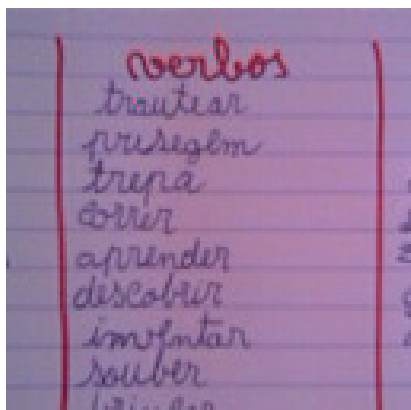 verbos
trautear
prisegem
trepa
correr
aprender
descobrir
inventar
souber